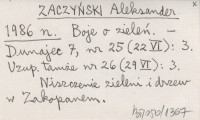 ZACZYŃSKI Aleksander
1986 r. Boje o zieleń. –
Dunajec 7, nr 25 (22 VI): 3.
Uzup. tamże nr 26 (29 VI): 3.
Niszczenie zieleni i drzew
w Zakopanem.